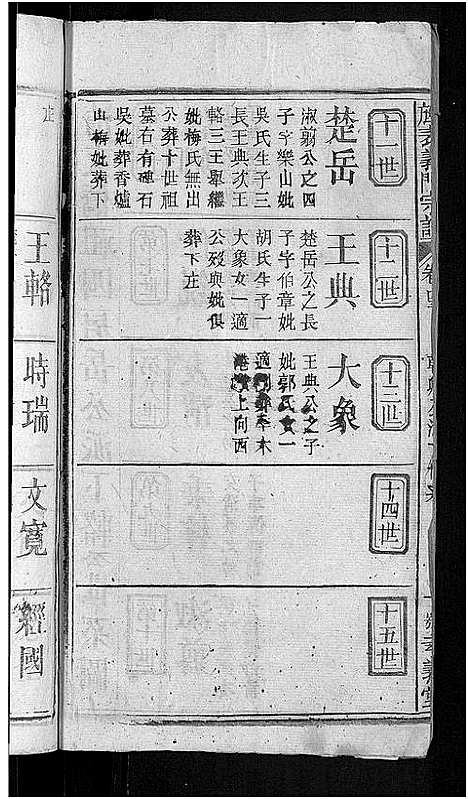 旌表義門宗譜
十一世
楚岳
淑翦公之四
子字樂山妣
吳氏生子三
長王典次王
輅三王舉繼
妣梅氏無出
公葬十世祖
墓右有碑石
吳妣葬香爐
山梅妣葬下
庄
十二世
王典
楚岳公之長
子字伯章妣
胡氏生子一
大象女一適
公歿與妣俱
葬下庄
十三世
大象
王典公之子
妣郭氏女一
上向西
十四世
十五世
王輅
時瑞
文寬
經國